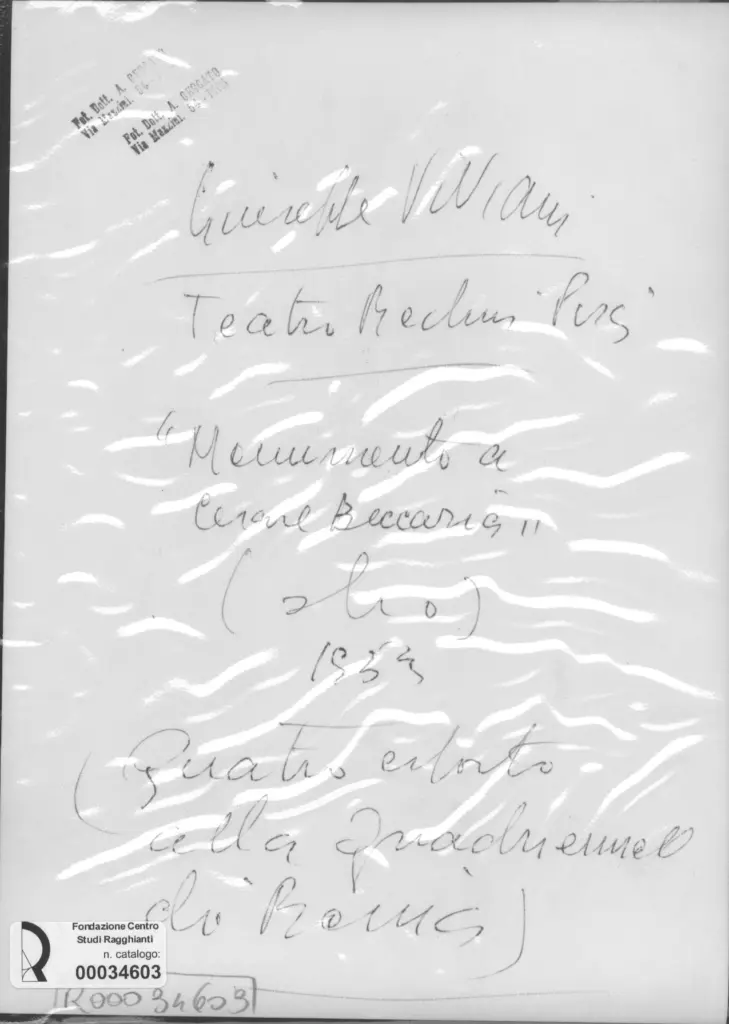 Fot. Dott. A.
Via Mazzini.
Fot. Dott. A.
Via Mazzini.
Giuseppe Viviani
Teatro Pisa
"Monumento a
Cesare Beccaria"
(olio)
195
(Quatro esposto
alla quadriennale
di Roma)
Fondazione Centro
Studi Ragghianti
n. catalogo:
00034603
R0034603